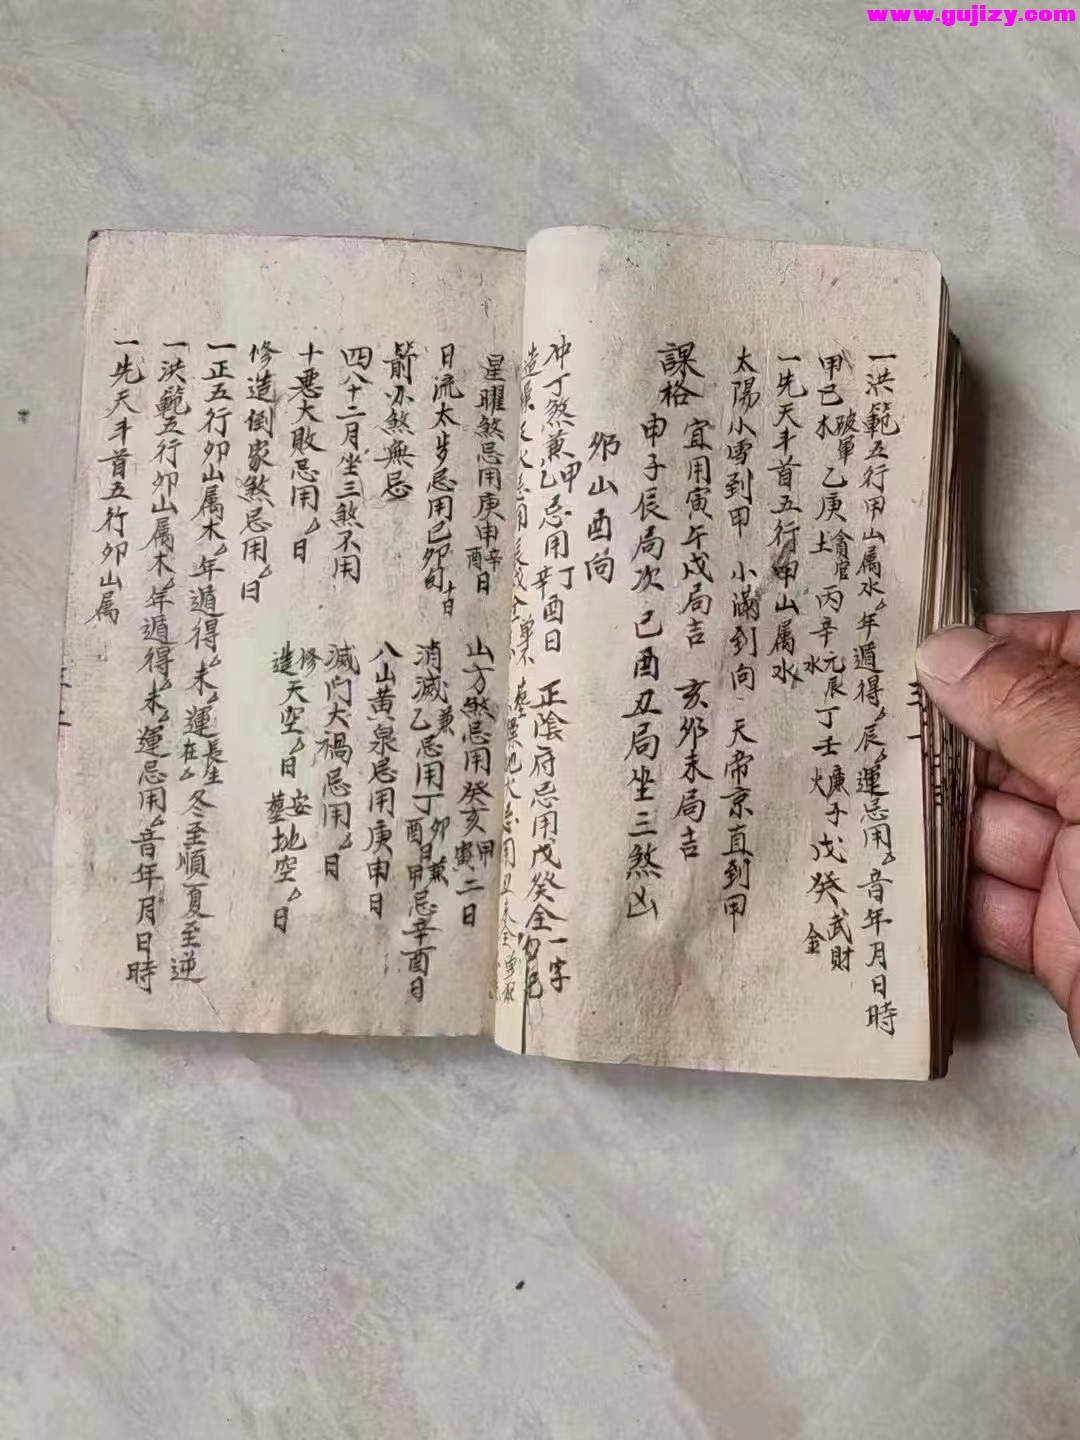 www.gujizy.com
一洪範五行甲山属水年遁得辰運忌用音年月日時
甲己破軍木乙庚貪官土丙辛元辰水丁壬廉子火戊癸武財金
一先天斗首五行甲山属水
太陽小雪到甲 小滿到向 天帝京直到甲
課格 宜用寅午戌局吉 亥卯未局吉
申子辰局次 己酉丑局坐三煞凶
卯山酉向
冲丁煞兼甲乙忌用丁辛酉日 正陰府忌用戊癸全一字
星曜煞忌用庚申辛酉日 山方煞忌用癸亥甲寅二日
日流太歩忌用已卯旬十日 消滅兼乙忌用丁卯酉日兼甲忌辛酉日
箭刃煞無忌 八山黄泉忌用庚申日
四八十二月坐三煞不用 滅门大禍忌用日
十悪大敗忌用日 修造天空日 安墓地空日
修造倒家煞忌用日
一正五行卯山属木年遁得未運在長生冬至順夏至逆
一洪範五行卯山属木年遁得未運忌用音年月日時
一先天斗首五行卯山属